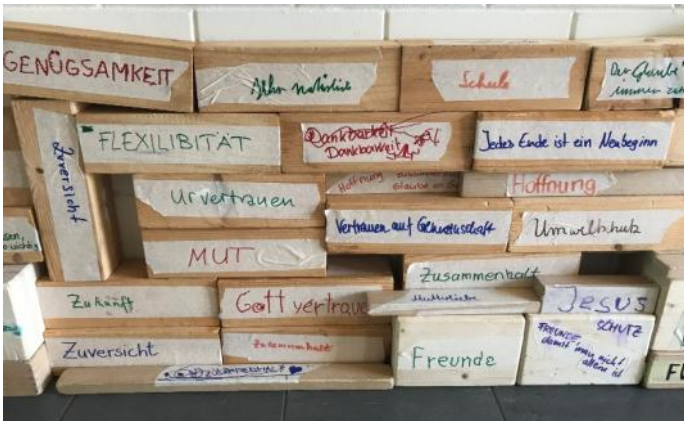 GENÜGSAMKEIT
Schule
Der Glaube
FLEXILIBITÄT
Dankbarkeit
Dankbarkeit
Jedes Ende ist ein Neubeginn
Zuversicht
Urvertrauen
Hoffnung
Glaube
Hoffnung
Vertrauen auf Gemeinschaft
Umweltschutz
MUT
Zusammenhalt
Zukunft
Gott vertraue
JESUS
Zuversicht
Zusammenhalt
Freunde
FREUNDE,
SCHUTZ
damit man nicht
allein ist